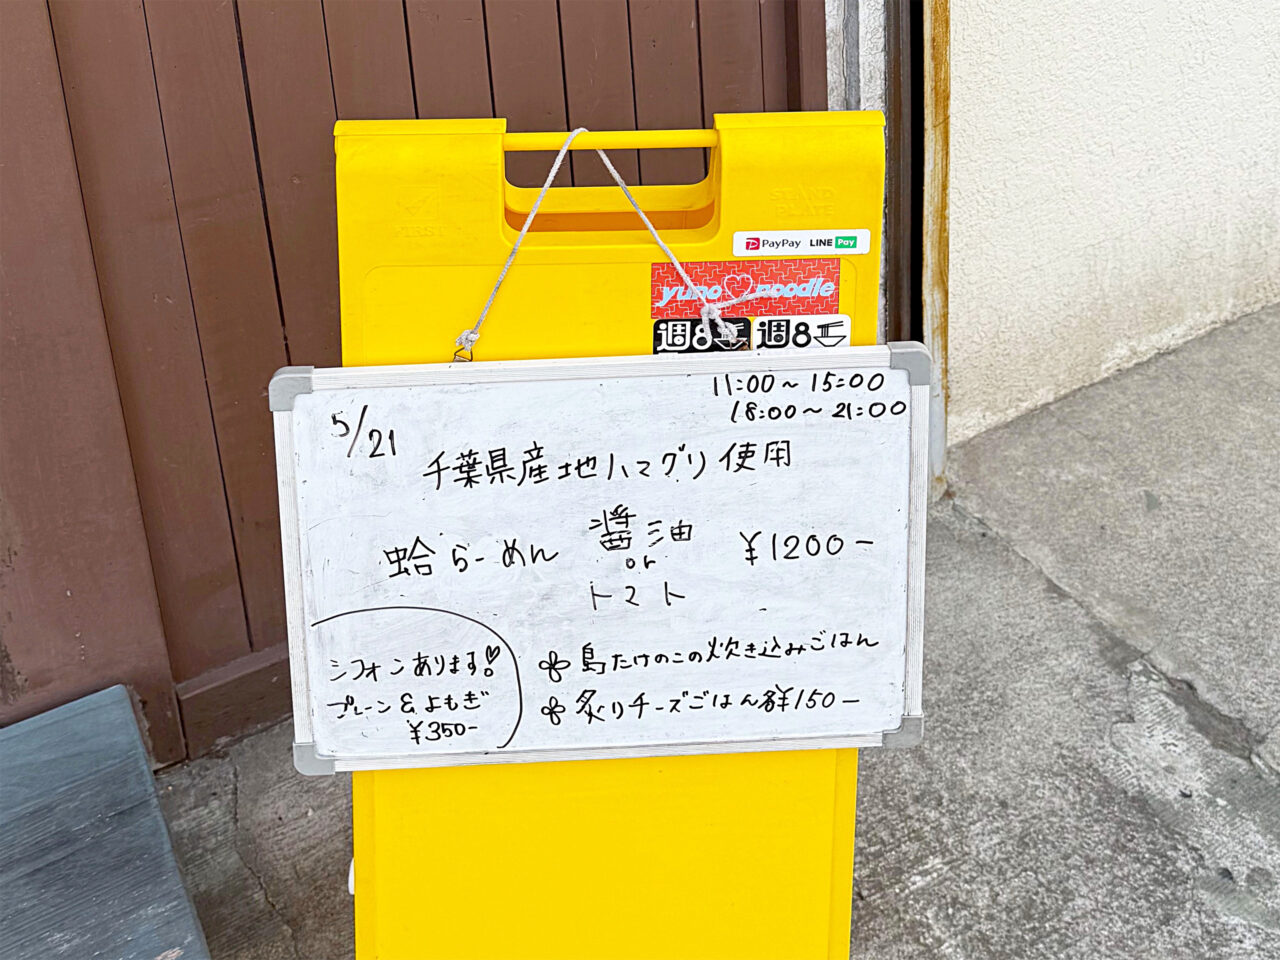 FIRST
STAND
PLATE
PayPay LINE Pay
yumo noodle
週8 週8
5/21
11:00～15:00
18:00～21:00
千葉県産地ハマグリ使用
蛤らーめん 醤油 or トマト ¥1200-
シフォンあります!
プレーン&よもぎ
¥350-
島たけのこの炊き込みごはん
炙りチーズごはん各¥150-